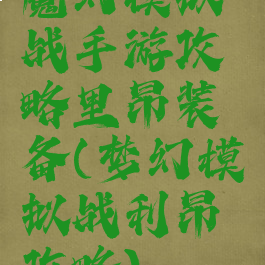 魔幻模拟
战手游攻
略里昂装
备(梦幻模
拟战利昂
攻略)